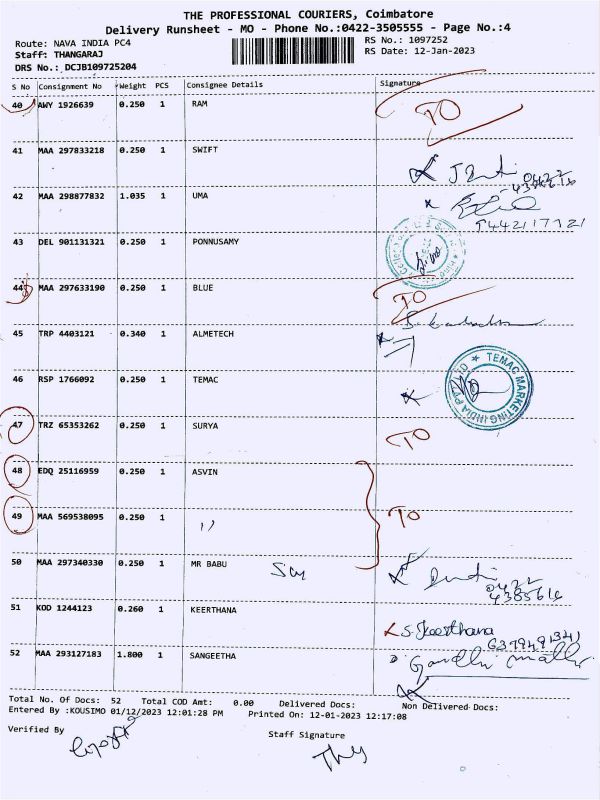 THE PROFESSIONAL COURIERS, Coimbatore
Delivery Runsheet - MO - Phone No.:0422-3505555 - Page No.:4
Route: NAVA INDIA PC4 RS No.: 1097252
Staff: THANGARAJ RS Date: 12-Jan-2023
DRS No.: DCJB109725204
S No Consignment No Weight PCS Consignee Details Signature
40 AWY 1926639 0.250 1 RAM TO
41 MAA 297833218 0.250 1 SWIFT
42 MAA 298877832 1.035 1 UMA
43 DEL 901131321 0.250 1 PONNUSAMY
44 MAA 297633190 0.250 1 BLUE TO
45 TRP 4403121 0.340 1 ALMETECH
46 RSP 1766092 0.250 1 TEMAC TEMAC MARKETING INDIA PVT LTD
47 TRZ 65353262 0.250 1 SURYA TO
48 EDQ 25116959 0.250 1 ASVIN
49 MAA 569538095 0.250 1 TO
50 MAA 297340330 0.250 1 MR BABU 0422 4385616
51 KOD 1244123 0.260 1 KEERTHANA S. Keerthana
52 MAA 293127183 1.800 1 SANGEETHA
Total No. Of Docs: 52 Total COD Amt: 0.00 Delivered Docs: Non Delivered Docs:
Entered By :KOUSIMO 01/12/2023 12:01:28 PM Printed On: 12-01-2023 12:17:08
Verified By Staff Signature